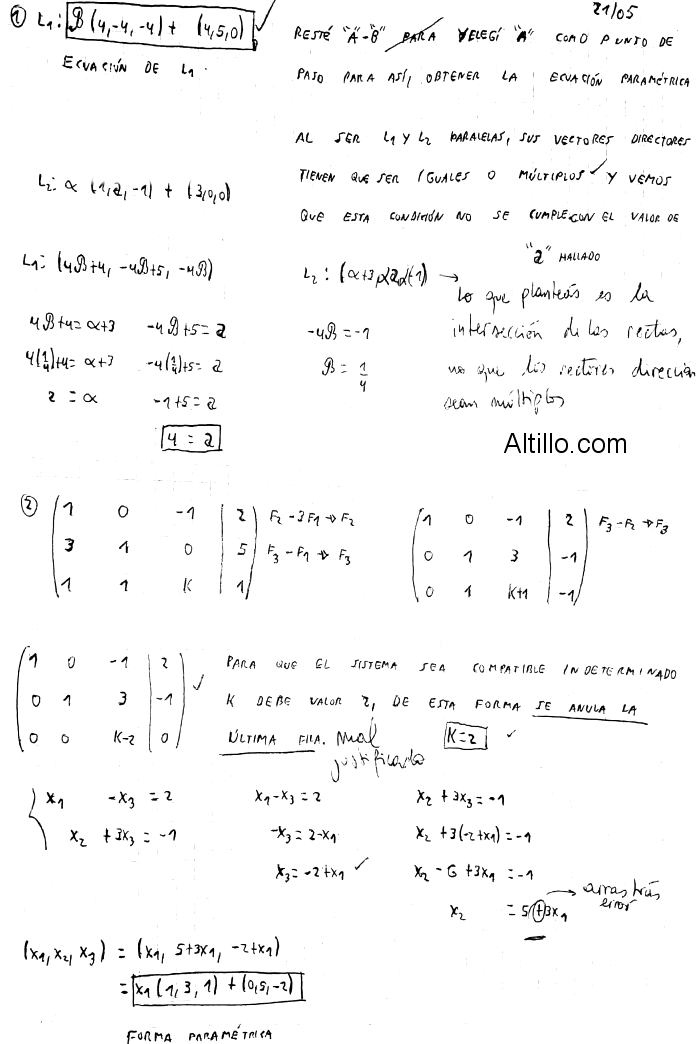 21/05
① L₁: β(4,-4,-4) + (4,5,0) ✓
ECUACIÓN DE L₁.
RESTÉ "A-B" PARA Y ELEGÍ "A" COMO PUNTO DE
PASO PARA ASÍ, OBTENER LA ECUACIÓN PARAMÉTRICA
AL SER L₁ Y L₂ PARALELAS, SUS VECTORES DIRECTORES
TIENEN QUE SER IGUALES O MÚLTIPLOS ✓ Y VEMOS
QUE ESTA CONDICIÓN NO SE CUMPLE CON EL VALOR DE
"a" HALLADO
L₂: α (1,a,-1) + (3,0,0)
L₁: (4β+4, -4β+5, -4β)
L₂: (α+3, αa, α(-1) →
Lo que planteás es la
intersección de las rectas,
no que los vectores dirección
sean múltiplos
4β+4=α+3 -4β+5=a -4β=-1
4(1/4)+4=α+3 -4(1/4)+5=a β=1/4
2 =α -1+5=a
4 = a
Altillo.com
② (1 0 -1 | 2) F₂-3F₁→F₂ (1 0 -1 | 2) F₃-F₂→F₃
(3 1 0 | 5) F₃-F₁→F₃ (0 1 3 | -1)
(1 1 K | 1) (0 1 K+1 | -1)
(1 0 -1 | 2)
(0 1 3 | -1) ✓
(0 0 K-2 | 0)
PARA QUE EL SISTEMA SEA COMPATIBLE INDETERMINADO
K DEBE VALOR 2, DE ESTA FORMA SE ANULA LA
ÚLTIMA FILA. mal K=2 ✓
justificado
x₁ -x₃ =2 x₁-x₃=2 x₂ +3x₃=-1
x₂ +3x₃=-1 -x₃=2-x₁ x₂ +3(-2+x₁)=-1
x₃=-2+x₁ ✓ x₂ -6 +3x₁ =-1
x₂ =5+3x₁ → arrastrás
error
(x₁, x₂, x₃) = (x₁, 5+3x₁, -2+x₁)
= x₁(1,3,1)+(0,5,-2)
FORMA PARAMÉTRICA